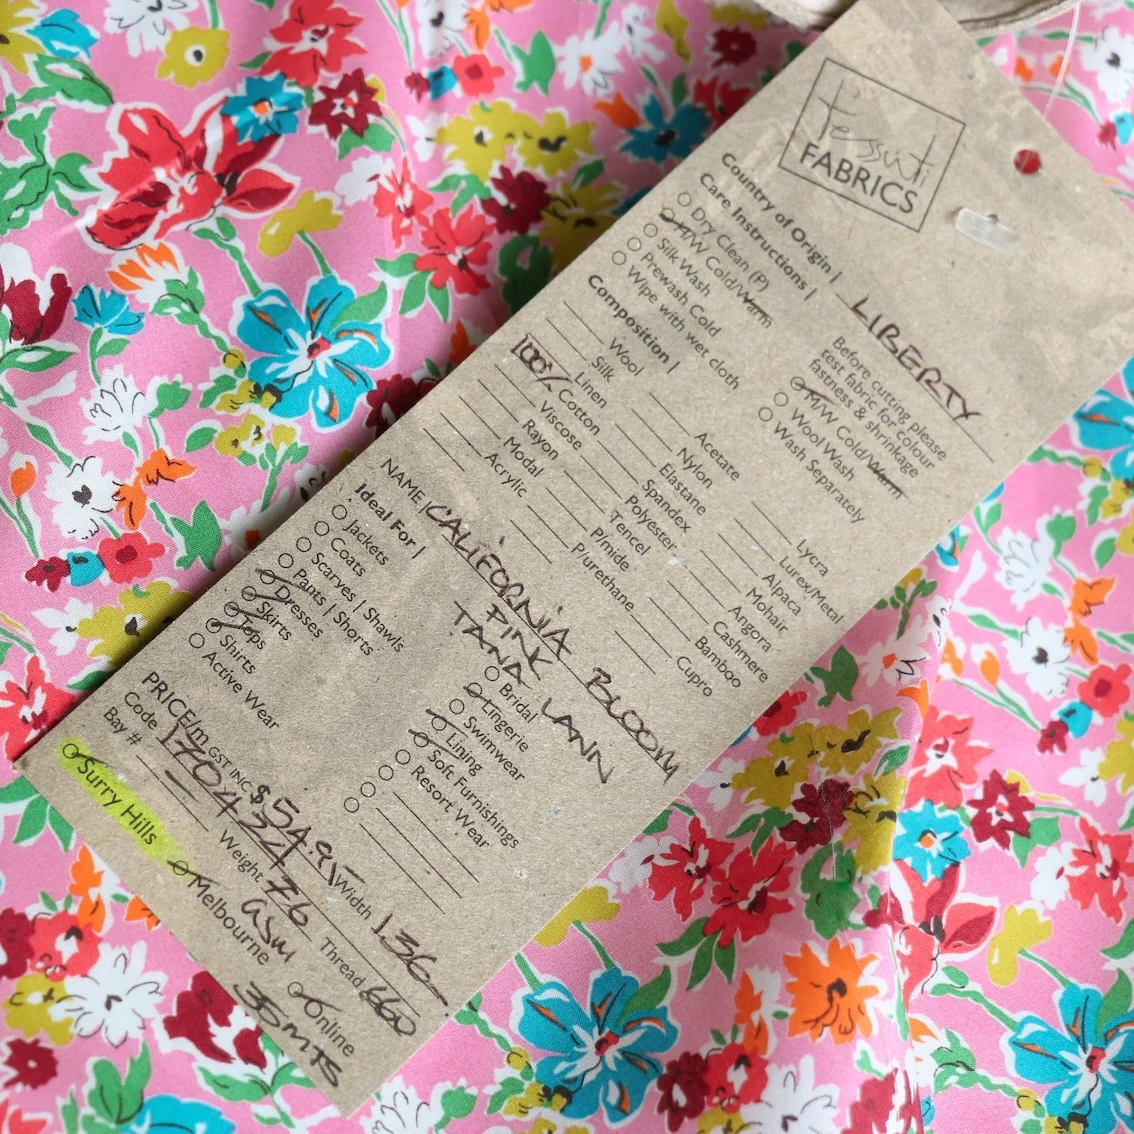 Tessuti
FABRICS
Country of Origin | LIBERTY
Care Instructions |
Dry Clean (P)
H/W Cold/Warm
Silk Wash
Prewash Cold
Wipe with wet cloth
Before cutting please
test fabric for colour
fastness & shrinkage
M/W Cold/Warm
Wool Wash
Wash Separately
Composition |
Wool
Silk
Linen
100% Cotton
Viscose
Rayon
Modal
Acrylic
Acetate
Nylon
Elastane
Spandex
Polyester
Tencel
P/mide
P/urethane
Lycra
Lurex/Metal
Alpaca
Mohair
Angora
Cashmere
Bamboo
Cupro
NAME | CALIFORNIA BLOOM
PINK
TANA LANN
Ideal For |
Jackets
Coats
Scarves | Shawls
Pants | Shorts
Dresses
Skirts
Tops
Shirts
Active Wear
Bridal
Lingerie
Swimwear
Lining
Soft Furnishings
Resort Wear
PRICE/m GST INC $54.95 Width 136
Code 170424 Weight 76 Thread 660
Bay #
Surry Hills
Melbourne
Online
35 MTS